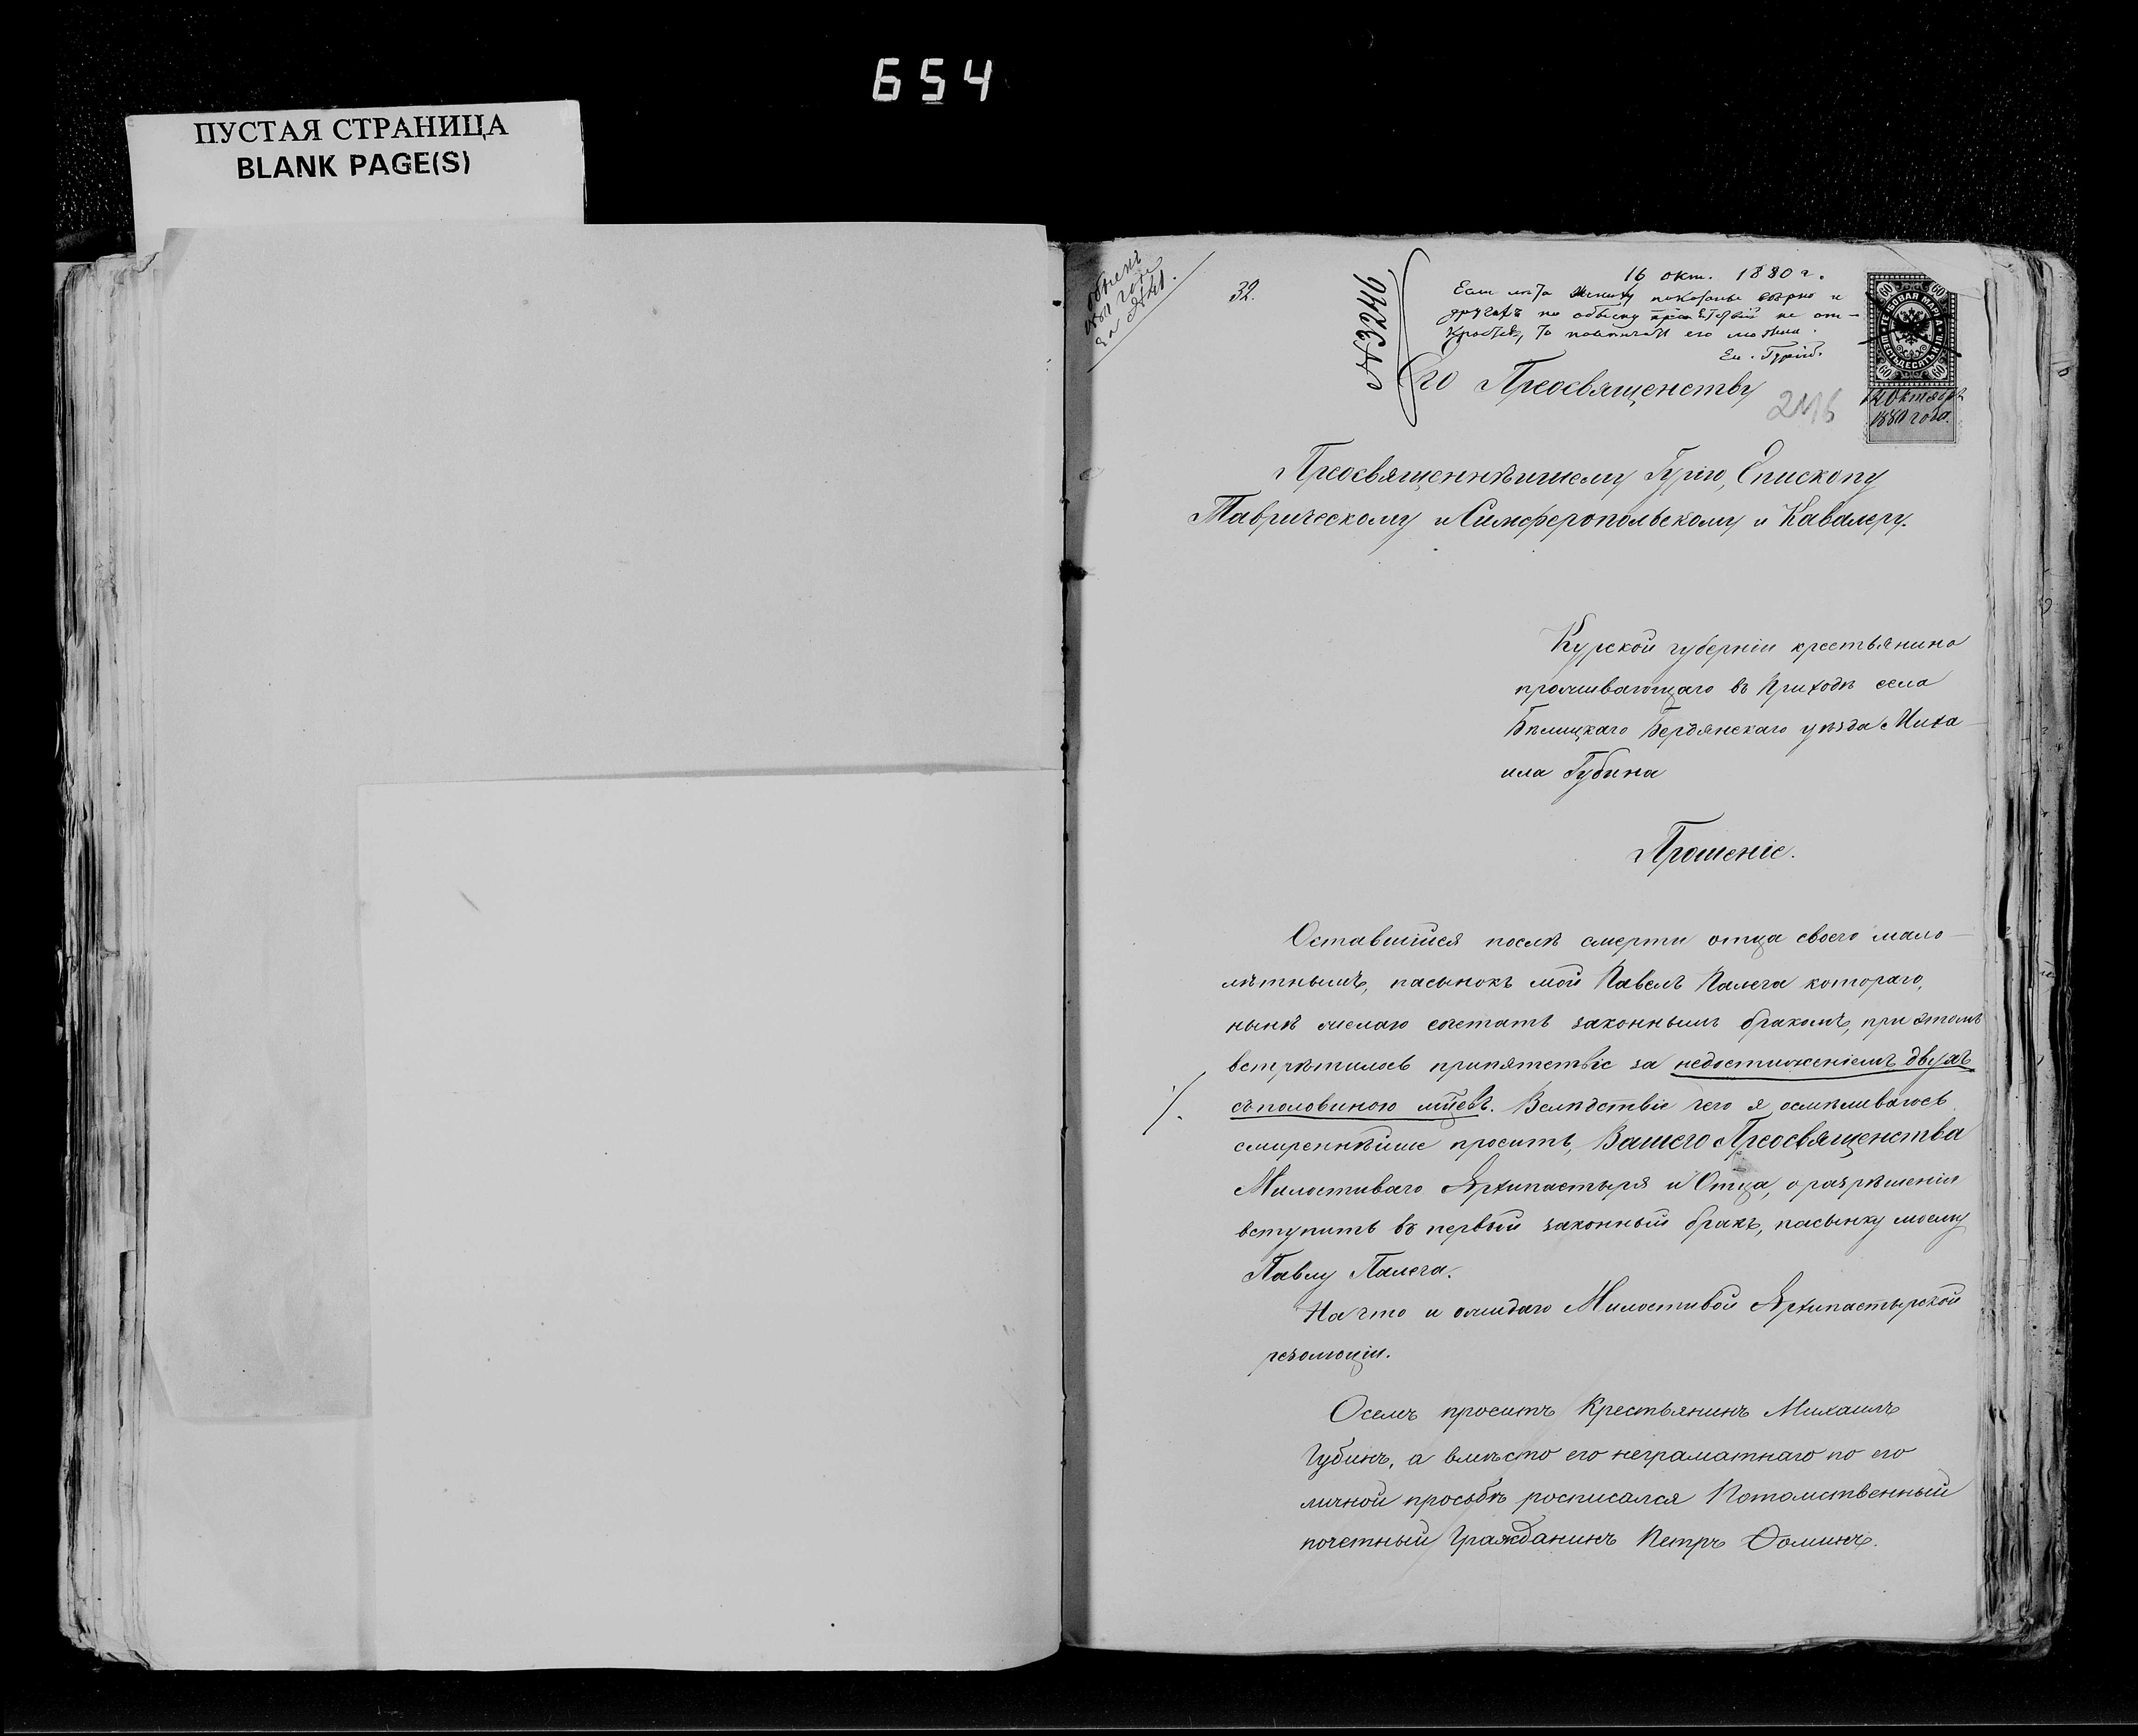 654
ПУСТАЯ СТРАНИЦА
BLANK PAGE(S)
32.
№3246
16 окт. 1880 г.
Если лѣта жениху показаны вѣрно и
другихъ по обыску препятствій не от-
кроется, то повѣнчать его можно.
Еп. Гурій.
60 60
ГЕРБОВАЯ МАРКА
ШЕСТЬДЕСЯТЪ КОП.
60 60
12 Октября
1880 года.
Его Преосвященству
Преосвященнѣйшему Гурію, Епископу
Таврическому и Симферопольскому и Кавалеру.
Курской губерніи крестьянина
проживающаго въ приходѣ села
Бѣлицкаго Бердянскаго уѣзда Миха-
ила Губина
Прошеніе.
Оставшійся послѣ смерти отца своего мало-
лѣтнымъ, пасынокъ мой Павелъ Палега котораго,
нынѣ желаю сочетать законнымъ бракомъ, при этомъ
встрѣтилось припятствіе за недостиженіемъ двухъ
съ половиною мѣсяцевъ. Вслѣдствіе чего я осмѣливаюсь
смиреннѣйше просить, Вашего Преосвященства
Милостиваго Архипастыря и Отца, о разрѣшеніи
вступить въ первый законный бракъ, пасынку моему
Павлу Палега.
На что и ожидаю Милостивой Архипастырской
резолюціи.
О семъ проситъ Крестьянинъ Михаилъ
Губинъ, а вмѣсто его неграматнаго по его
личной просьбѣ росписался Потомственный
почетный Гражданинъ Петръ Фоминъ.